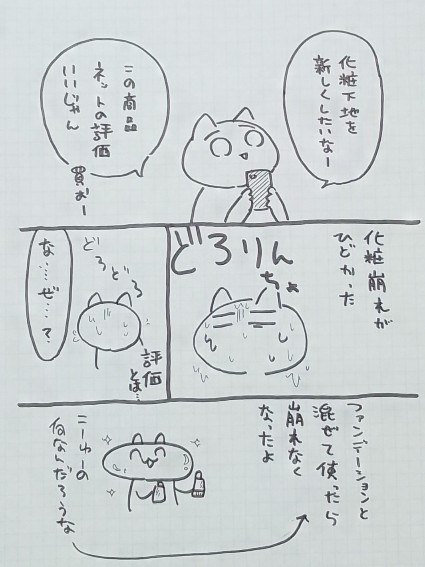 化粧下地を
新しくしたいなー
この商品
ネットの評価
いいじゃん
買おー
化粧崩れが
ひどかった
どろりんちょ
どろどろ
な……ぜ…?
評価
とは…
ファンデーションと
混ぜて使ったら
崩れなく
なったよ
こーゆーの
何なんだろうな